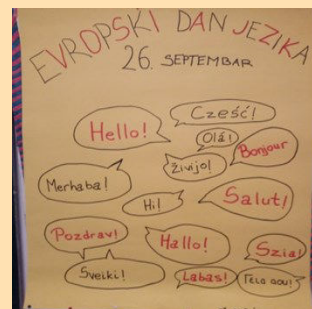 EVROPSKI DAN JEZIKA
26. SEPTEMBAR
Cześć!
Hello!
Olá!
Bonjour
Živijo!
Merhaba!
Hi!
Salut!
Pozdrav!
Hallo!
Szia!
Sveiki!
Labas!
Γεια σου!